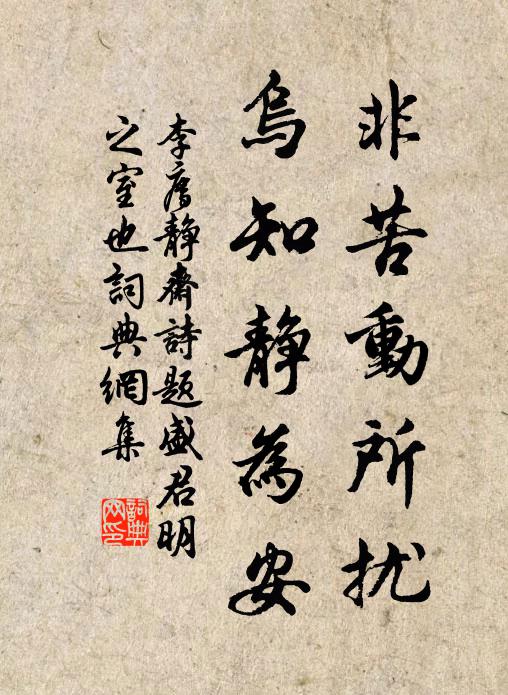 非苦動所扰
烏知静為安
李廌静齋詩題盛君明
之室也詞典網集
詞典网印